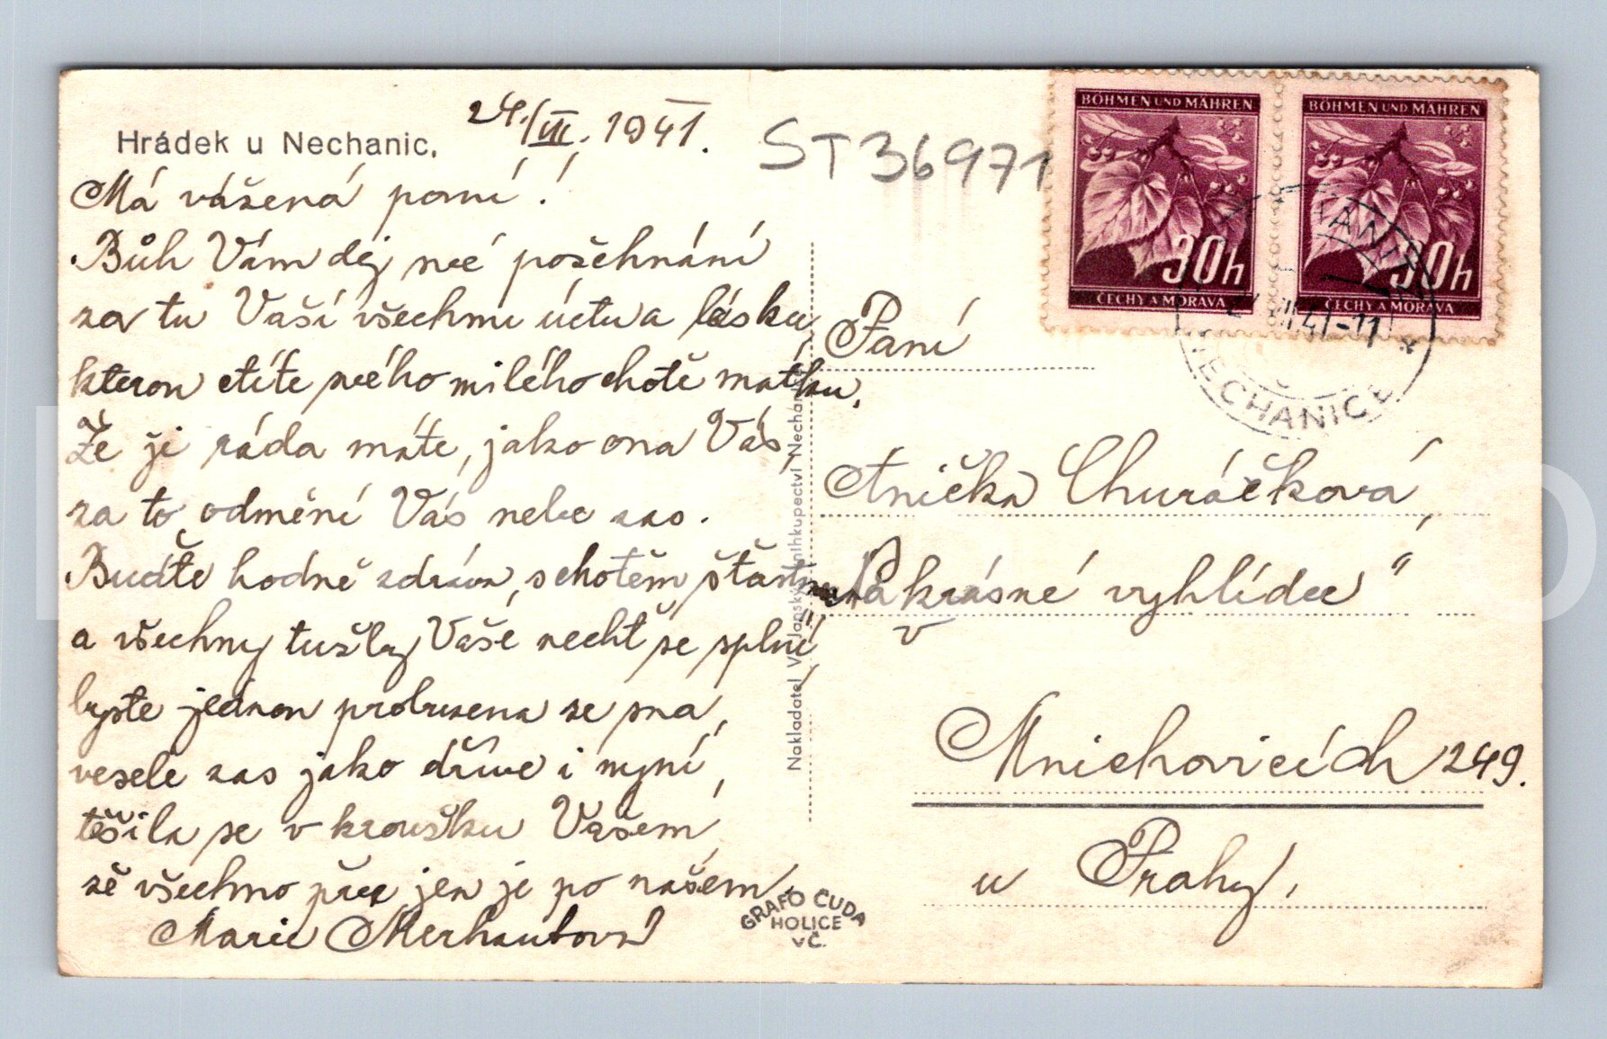 Hrádek u Nechanic,
24./VII. 1941.
ST36971
Má vážená paní!
Bůh Vám dej své požehnání
za tu Vaší všechnu úctu a lásku
kterou ctíte svého milého chotě matku,
Že ji ráda máte, jako ona Vás,
za to odmění Vás nebe zas.
Buďte hodně zdráva, s chotěm šťastna
a všechny tužby Vaše nechť se splní
byste jednou probuzena ze sna,
vesele zas jako dříve i nyní,
těšila se v kroužku Vašem,
že všechno přec jen je po našem,
Marie Merhautová
BÖHMEN UND MÄHREN
30h
ČECHY A MORAVA
BÖHMEN UND MÄHREN
30h
ČECHY A MORAVA
NECHANICE
Paní
Anička Churáčková,
"Na krásné vyhlídce"
v
Mnichovicích 249.
u Prahy,
Nakladatel V. Janský, knihkupectví Nechanice
GRAFO ČUDA
HOLICE
v Č.